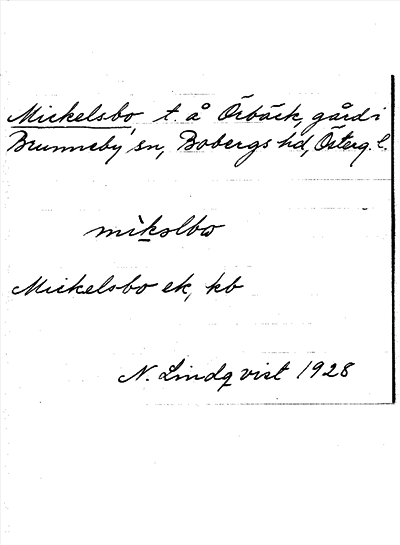 Mickelsbo, t. å Örbäck, gård i
Brunneby sn, Bobergs hd, Österg. l.
mìkəlbω
Mickelsbo ek, kb
N. Lindqvist 1928